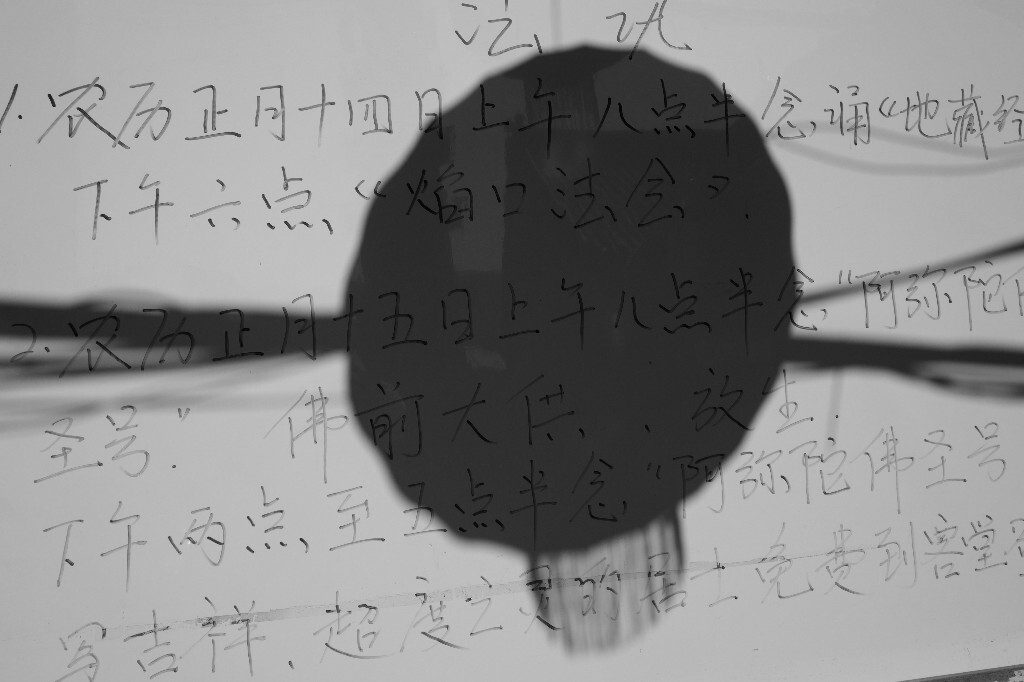 法讯
1.农历正月十四日上午八点半念诵《地藏经
下午六点“焰口法会”.
2.农历正月十五日上午八点半念“阿弥陀佛
圣号”. 佛前大供、放生.
下午两点至五点半念“阿弥陀佛圣号
写吉祥、超度之灵的居士免费到客堂登